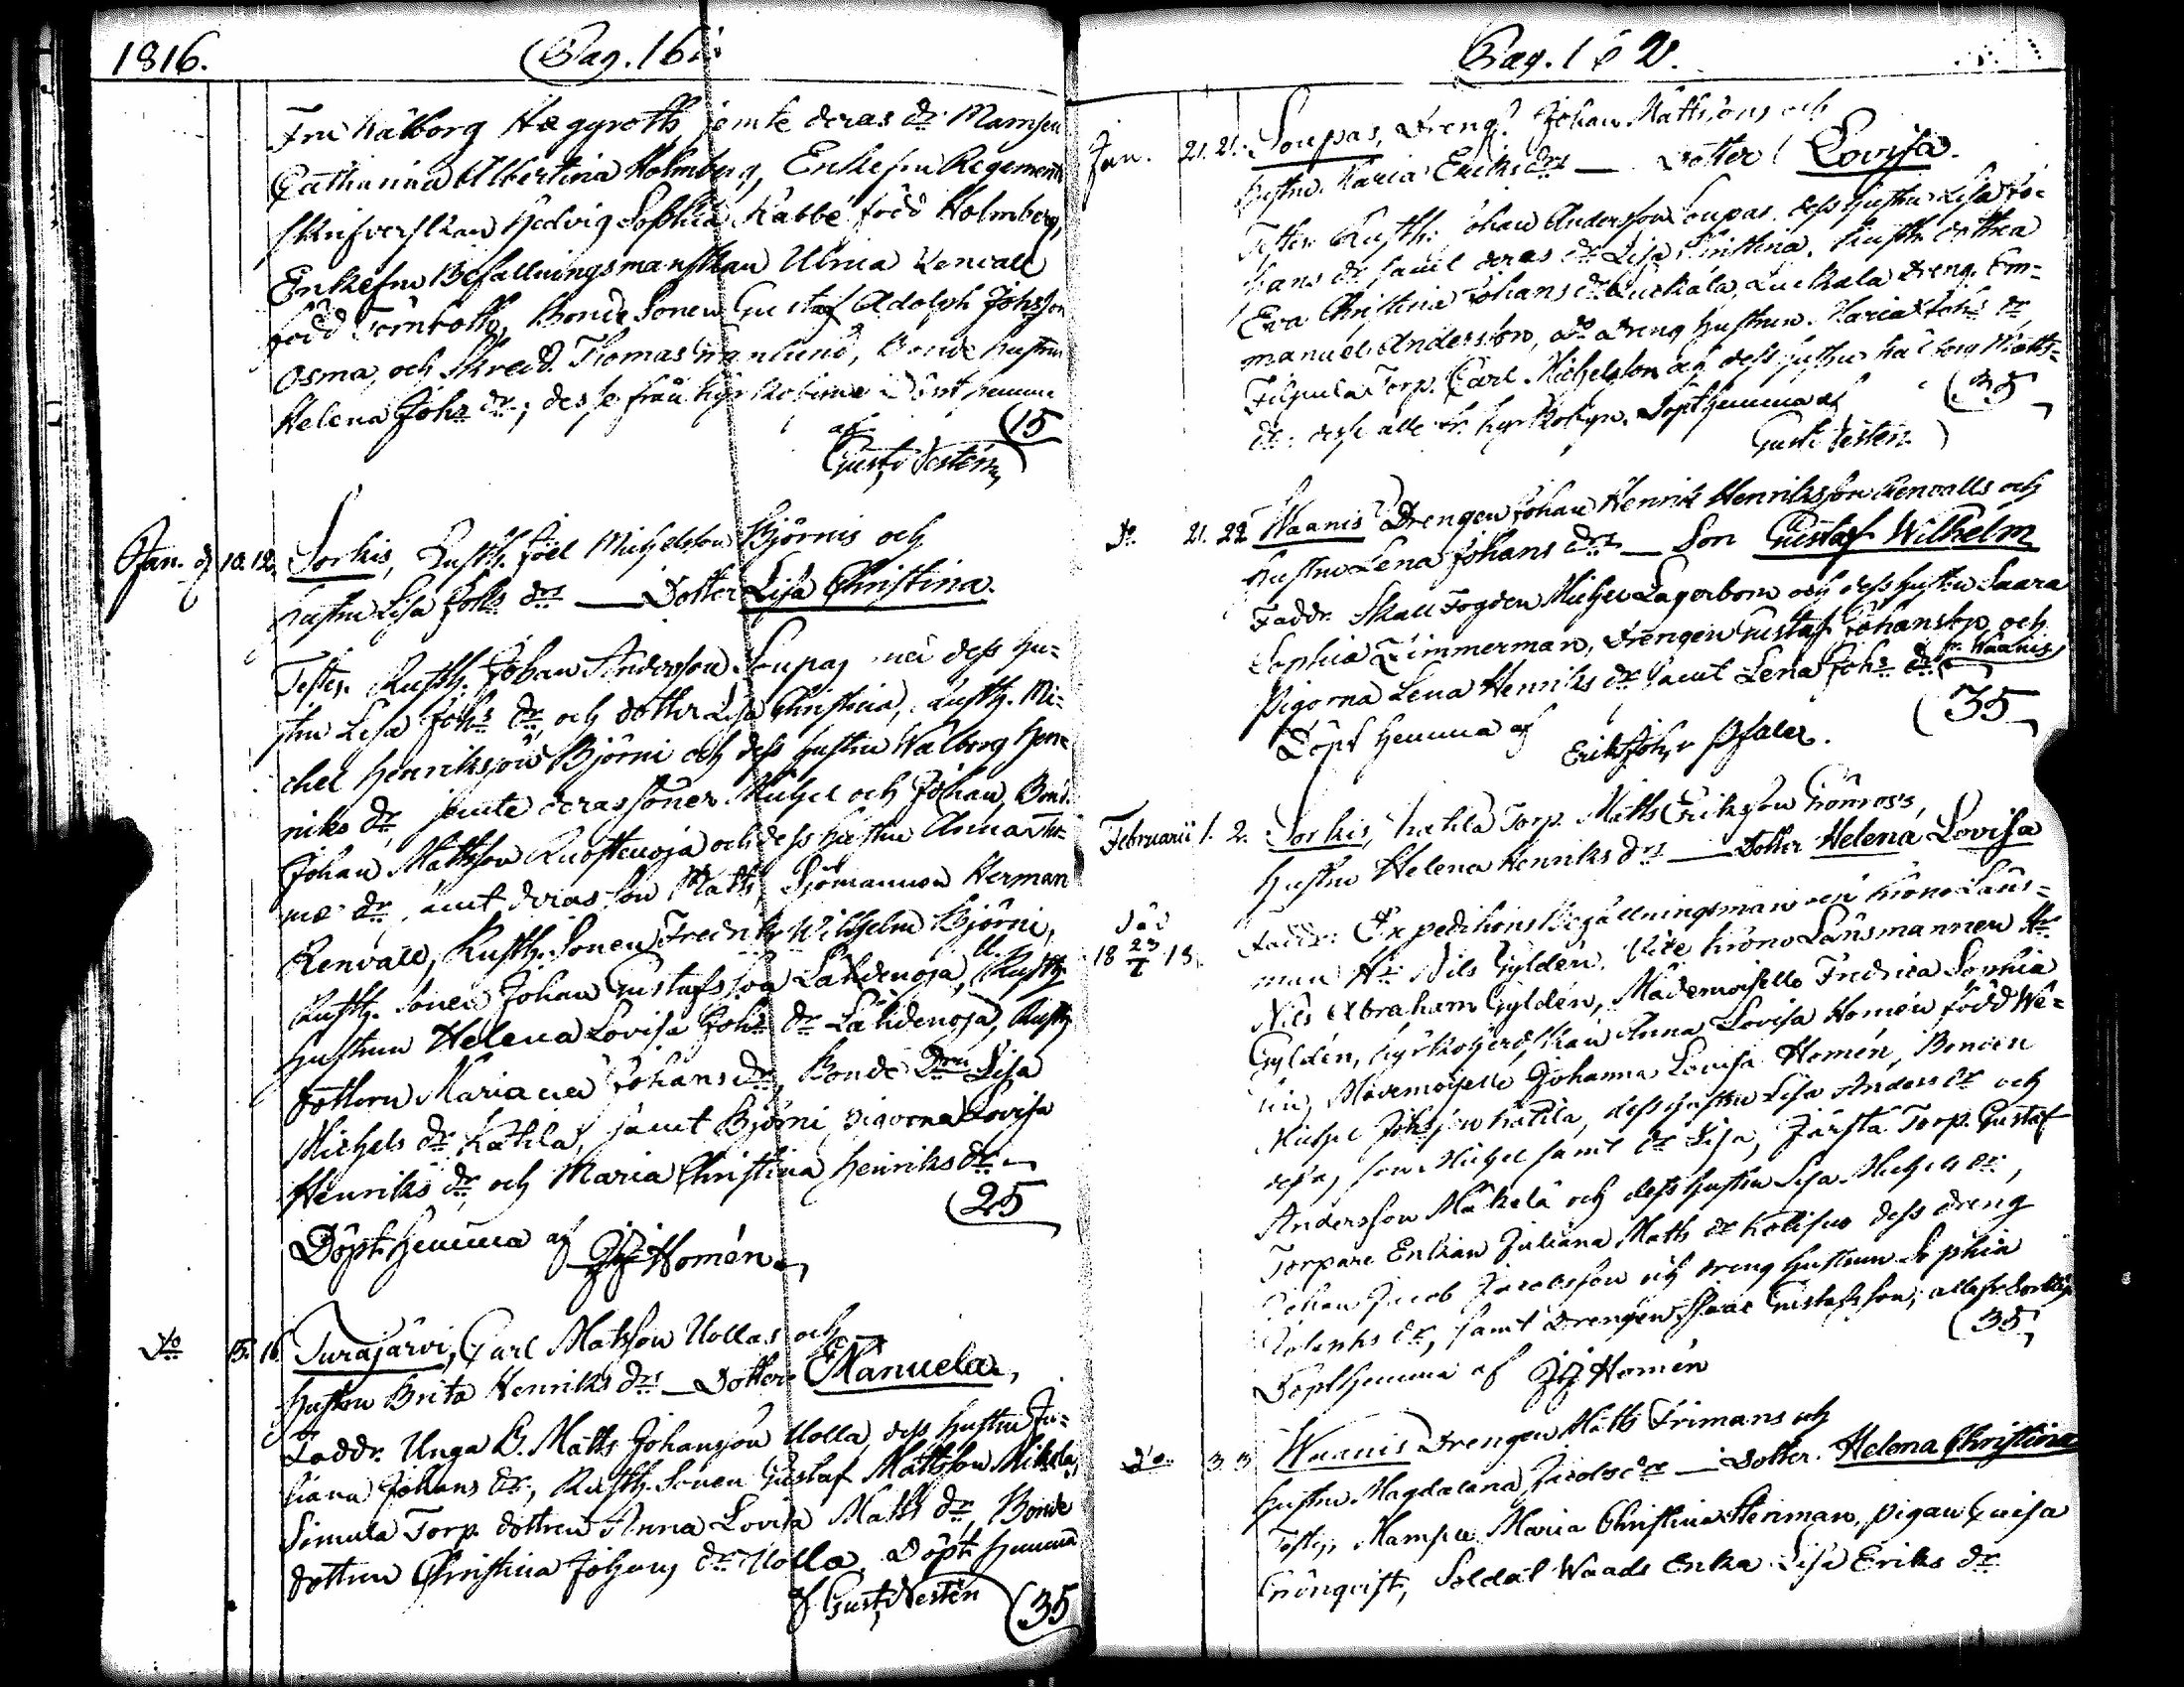 1816.
Pag. 161.
Fru Walborg Hægyroth jemte deras dr Mamsell
Catharina Albertina Holmberg, Enkefru Regements
skrifverskan Hedvig Sophia Kabbe född Holmberg,
Enkefru Befallningsmanskan Ulrica Renvall
född Törnroth, Bonde Sonen Gustaf Adolph Johsson
Osma, och Skredd. Thomas Granlund, Bonde hustrun
Helena Johs dr; desse från Kyrkobyn. Döpt hemma
af (15
Gust. Vestén
Jan. 10. 12. Sorkis, Rusth. Joel Michelsson Björnis och
hustru Lisa Johs drs — Dotter Lisa Christina.
Testes. Rusth. Johan Andersson Soupas med dess hu-
stru Lisa Johs dr och dotter Lisa Christina, Rusth. Mi-
chel Henriksson Björni och dess hustru Walborg Hen-
riks dr jemte deras söner Michel och Johan, Bond.
Johan Mattsson Ruostenoja och dess hustru Anna Tho-
mæ dr, samt deras son Matts, Sjömannen Herman
Renvall, Rusth. Sonen Fredrik Wilhelm Björni,
Rusth. Sonen Johan Gustafsson Lähdenoja, Rusth.
hustrun Helena Lovisa Johs dr Lähdenoja, Rusth.
dottern Maria Johans dr, Bonde Drn Lisa
Michels dr Katila, samt Björni pigorna Lovisa
Henriks dr och Maria Christina Henriks dr
(25
Döpt hemma af JJ Homén
Do 15. 16. Turajärvi, Carl Matsson Uollas och
hustru Brita Henriks drs — Dotter Manuela,
Faddr. Unga B. Matts Johansson Uolla, dess hustru Ju-
liana Johans dr, Rusth. Sonen Gustaf Mattsson Mikola,
Simula Torp. dottren Anna Lovisa Matts dr, Bonde
dottren Christina Johans dr Uolla. Döpt hemma
af Gust. Vestén (35
Pag. 162.
Jan. 21. 21. Soupas, Dreng. Johan Mattssons och
hustru Maria Eriks drs — Dotter Lovisa.
Testes Rusth. Johan Andersson Soupas, dess hustru Lisa Jo-
hans dr samt deras dr Lisa Christina, Rusth. dottren
Eva Christina Johans dr Luckala, Luckala Dreng. Em-
manuel Andersson, do dreng hustrun Maria Johs dr
Filpula Torp. Carl Michelsson och dess hustru Walborg Matts-
dr: desse alle fr. Kyrkobyn. Döpt hemma af (35
Gust. Vestén.
Do 21. 22 Waanis Drengen Johan Henrik Henriksson Renvalls och
hustru Lena Johans drs — Son Gustaf Wilhelm
Faddr. Skall Fogden Michel Lagerbom och dess hustru Saara
Sophia Zimmerman, Drengen Gustaf Johansson och
Pigorna Lena Henriks dr samt Lena Johs dr fr. Waanis
Döpt hemma af (35
Erik Joh. v Pfaler.
Februarii 1. 2. Sorkis, Katila Torp. Matts Eriksson Grönroos's,
hustru Helena Henriks drs — Dotter Helena Lovisa
Död
18 23/7 18
Faddr: Expeditions Befallningsman och Krono Läns-
man Hr Nils Gyldén, Vice Krono Länsmannen Hr
Nils Abraham Gyldén, Mademoiselle Fredrica Sophia
Gyldén, Kyrkoherdskan Anna Lovisa Homén född We-
lin, Mademoiselle Johanna Lovisa Homén, Bonden
Michel Johsson Katila, dess hustru Lisa Anders dr och
son Michel samt dr Lisa, Järsta Torp. Gustaf
Andersson Mäkelä och dess hustru Lisa Michels dr,
Torpare Enkan Juliana Matts dr dess dreng
Johan Jacob Jacobsson och dreng hustrun Sophia
dr, samt Drengen Isaac Gustafsson; alla fr. Sorkis
Döpt hemma af JJ Homén (35
Do 3. 3 Waanis Drengen Matts Frimans och
hustru Magdalena Jacobs drs — Dotter. Helena Christina
Testes, Mamsell Maria Christina Stenman, pigan Lovisa
Grönqvist, Soldat Waads Enka Lisa Eriks dr